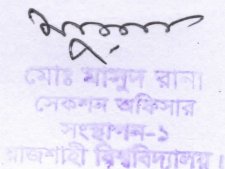 মোঃ মাসুদ রানা
সেকশন অফিসার
সংস্থাপন-১
রাজশাহী বিশ্ববিদ্যালয়।